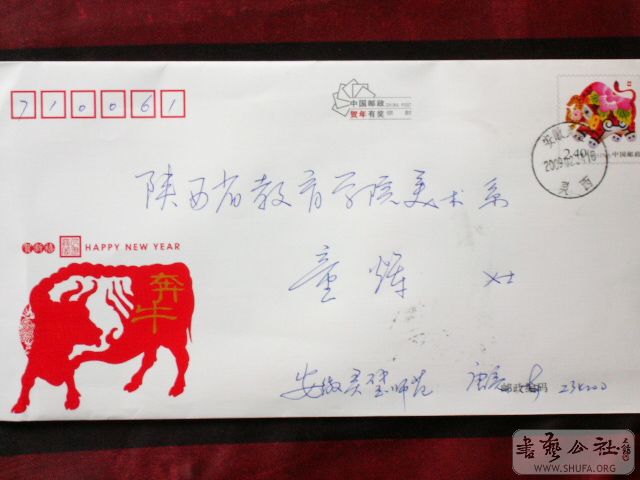 710061
中国邮政 CHINA POST
贺年有奖
2.40 中国邮政
安徽
2009.02.
灵西
陕西省教育学院美术系
贺新禧 HAPPY NEW YEAR
童辉
奔牛
安徽灵璧师范
邮政编码 234200
書藝公社
WWW.SHUFA.ORG